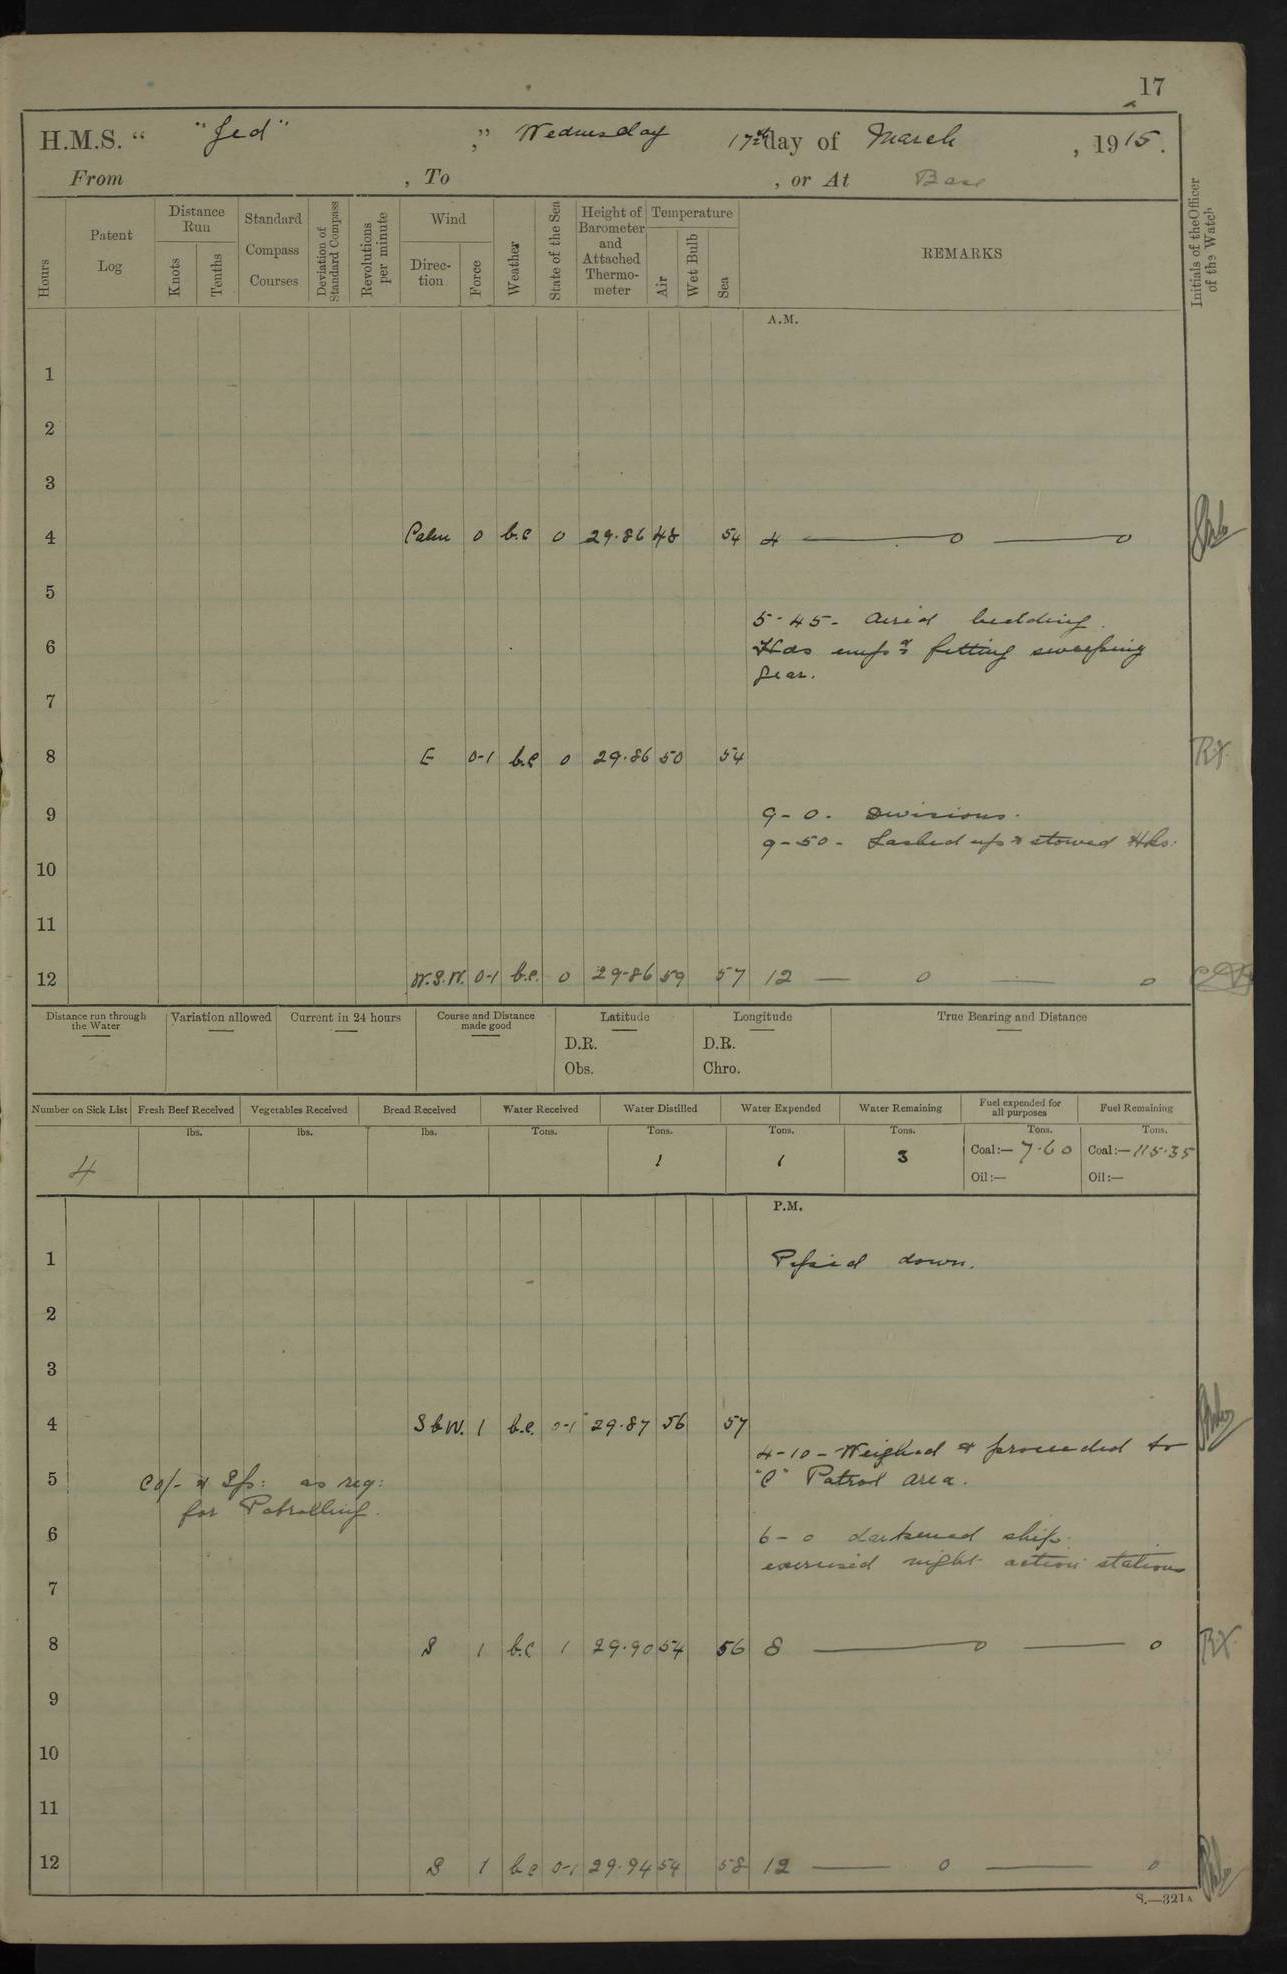 17
H.M.S. “ "Jed" ,” Wednesday 17th day of March , 1915.
From , To , or At Base
Hours
Patent Log
Distance Run
Knots
Tenths
Standard Compass Courses
Deviation of Standard Compass
Revolutions per minute
Wind
Direc-tion
Force
Weather
State of the Sea
Height of Barometer and Attached Thermo-meter
Temperature
Air
Wet Bulb
Sea
REMARKS
Initials of the Officer of the Watch
A.M.
1
2
3
4 Calm 0 b.c 0 29.86 48 54 4 — 0 — 0
5
5-45- Airéd bedding.
6 Hds emp: fitting sweeping
gear.
7
8 E 0-1 b.c 0 29.86 50 54 R.Y.
9 9-0. Divisions.
9-50- Lashed up & stowed Hks.
10
11
12 W.S.W. 0-1 b.c. 0 29.86 59 57 12 — 0 — 0
Distance run through the Water
Variation allowed
Current in 24 hours
Course and Distance made good
Latitude
D.R.
Obs.
Longitude
D.R.
Chro.
True Bearing and Distance
Number on Sick List
Fresh Beef Received
Vegetables Received
Bread Received
Water Received
Water Distilled
Water Expended
Water Remaining
Fuel expended for all purposes
Fuel Remaining
lbs. lbs. lbs. Tons. Tons. Tons. Tons. Tons. Tons.
4 1 1 3 Coal:— 7.60 Coal:— 115.35
Oil:— Oil:—
P.M.
1 Pipéd down.
2
3
4 S b W. 1 b.c. 0-1 29.87 56 57
4-10- Weighed & proceeded to
5 Co/- & Sp: as req: "C" Patrol area.
for Patrolling.
6 6-0 darkened ship.
exercised night action stations
7
8 S 1 b.c 1 29.90 54 56 8 — 0 — 0 R.Y.
9
10
11
12 S 1 b.c 0-1 29.94 54 58 12 — 0 — 0
S.—321A